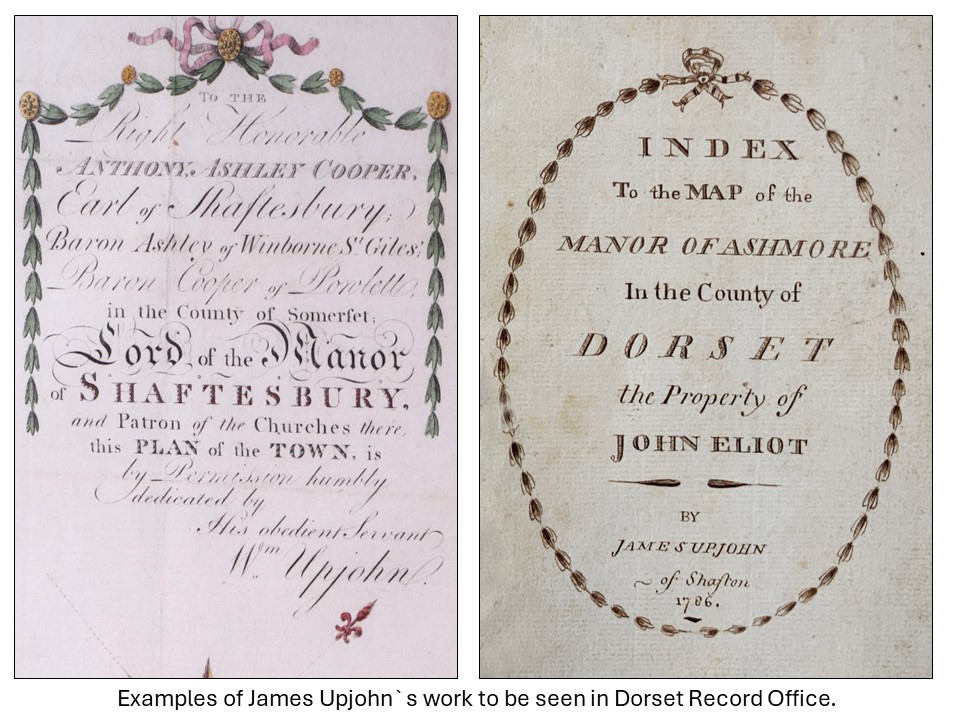 TO THE
Right Honorable
ANTHONY, ASHLEY COOPER,
Earl of Shaftesbury;
Baron Ashley of Winborne St. Giles;
Baron Cooper of Powlett,
in the County of Somerſet;
Lord of the Manor
of SHAFTESBURY,
and Patron of the Churches there,
this PLAN of the TOWN, is
by Permission humbly
dedicated by
His obedient Servant
Wm Upjohn.
INDEX
To the MAP of the
MANOR OF ASHMORE
In the County of
DORSET
the Property of
JOHN ELIOT
BY
JAMES UPJOHN
of Shaſton
1786.
Examples of James Upjohn`s work to be seen in Dorset Record Office.